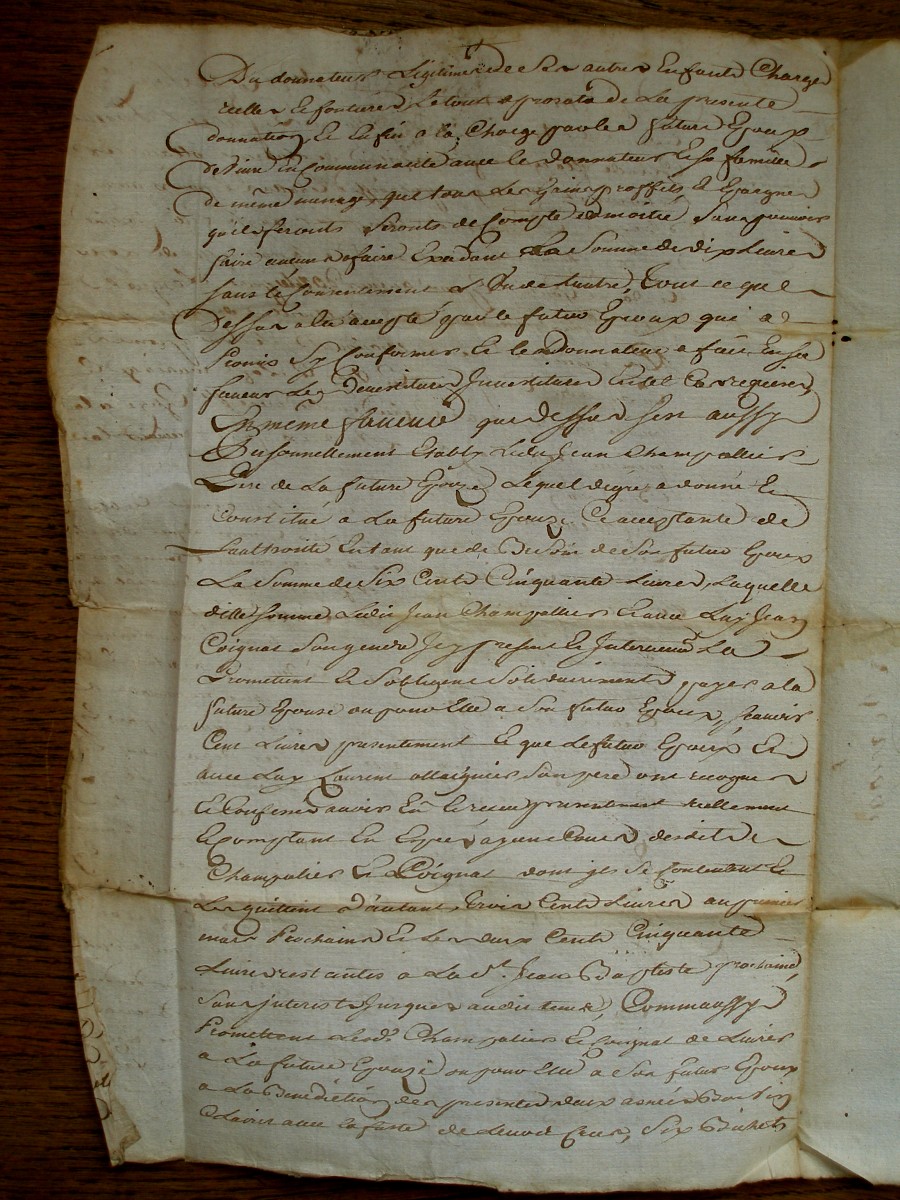 Du donnateur Legitimer de Ses autres Enfants Charges
reelles et fonsieres, Le tout a prorata de La presente
donnation, Et En fin a la Charge par le futur Epoux
de vivre En Communauté avec le donnateur Et Sa famille
de même menage, que tous Les proffits Et Epargnes
qu'ils feronts Seronts de Compte Et moitié Sans pouvoir
faire aucunes afaires Excédant La Somme de dix Livres
Sans le Consentement L'Un de L'autre, Tout ce que
Dessus a Eté accepté par le futur Epoux qui a
Promis S'y Conformer Et le Donnateur a fait En Sa
faveur Les Devestitures Investitures En tel Cas requises,
En même faveur que dessus S'est aussy
Personnellement Etably Ledit Jean Champallier
Père de La future Epouse, Lequel de gré a donné Et
Constitué a La future Epouse Ce acceptante de
L'authorité En tant que de Besoin de Son futur Epoux
La Somme de Six Cents Cinquante Livres, Laquelle
ditte Somme Ledit Jean Champallier Et avec Luy Jean
Coignat Son gendre Icy present Et Intervenant La
Promettent Et S'obligent Solidairement payer a la
future Epouse ou pour Elle a Son futur Epoux, Sçavoir
Cent Livres presentement Et que Le futur Epoux Et
avec Luy Laurent Son père ont recognu
Et Confessé avoir Eu Et receu presentement reellement
Et comptant En Espèces ayant Cours desdits
Champalier Et Coignat dont ils Se Contentent Et
Les quittent D'autant, Trois Cents Livres au premier
mars Prochain Et Les deux Cents Cinquante
Livres restantes a La St. Jean Baptiste prochaine,
Sans interest Jusques audit temps, Comm'aussy
Promettent Lesds. Champalier Et Coignat de Livrer
a La future Epouse ou pour Elle a Son futur Epoux
a La Bénédiction des presentes deux asnées Bon Vin
Clairet avec la futte de Six Bichets